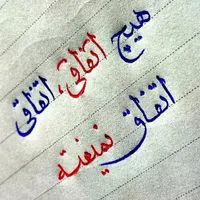 هیچ اتفاقی، اتفاقی
اتفاق نمیفته